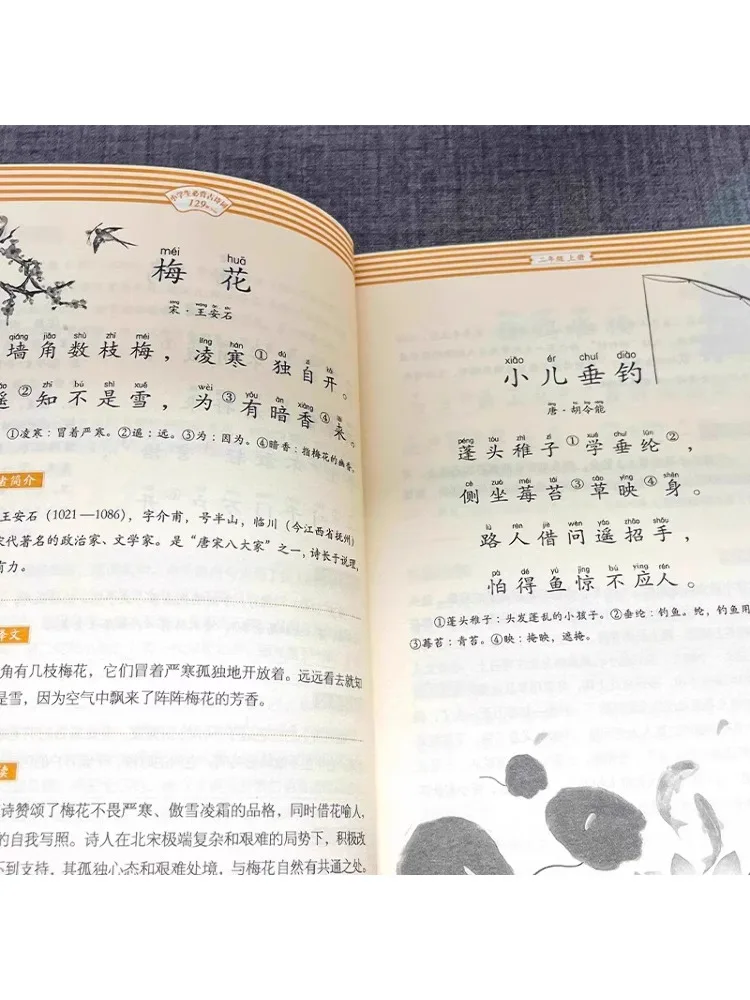 小学生必背古诗词
129
méi huā
梅花
宋·王安石
qiáng jiǎo shù zhī méi líng hán dú zì kāi
墙角数枝梅，凌寒①独自开。
zhī bú shì xuě wèi yǒu àn xiāng lái
遥②知不是雪，为③有暗香④来。
①凌寒：冒着严寒。②遥：远。③为：因为。④暗香：指梅花的幽香。
者简介
王安石（1021—1086），字介甫，号半山，临川（今江西省抚州）
宋代著名的政治家、文学家。是“唐宋八大家”之一，诗长于说理，
有力。
译文
角有几枝梅花，它们冒着严寒孤独地开放着。远远看去就知
是雪，因为空气中飘来了阵阵梅花的芳香。
读
诗赞颂了梅花不畏严寒、傲雪凌霜的品格，同时借花喻人，
的自我写照。诗人在北宋极端复杂和艰难的局势下，积极改
不到支持，其孤独心态和艰难处境，与梅花自然有共通之处。
二年级 上册
xiǎo ér chuí diào
小儿垂钓
唐·胡令能
péng tóu zhì zǐ xué chuí lún
蓬头稚子①学垂纶②，
cè zuò méi tái cǎo yìng shēn
侧坐莓苔③草映④身。
lù rén jiè wèn yáo zhāo shǒu
路人借问遥招手，
pà dé yú jīng bú yìng rén
怕得鱼惊不应人。
①蓬头稚子：头发蓬乱的小孩子。②垂纶：钓鱼。纶，钓鱼用
③莓苔：青苔。④映：掩映，遮掩。